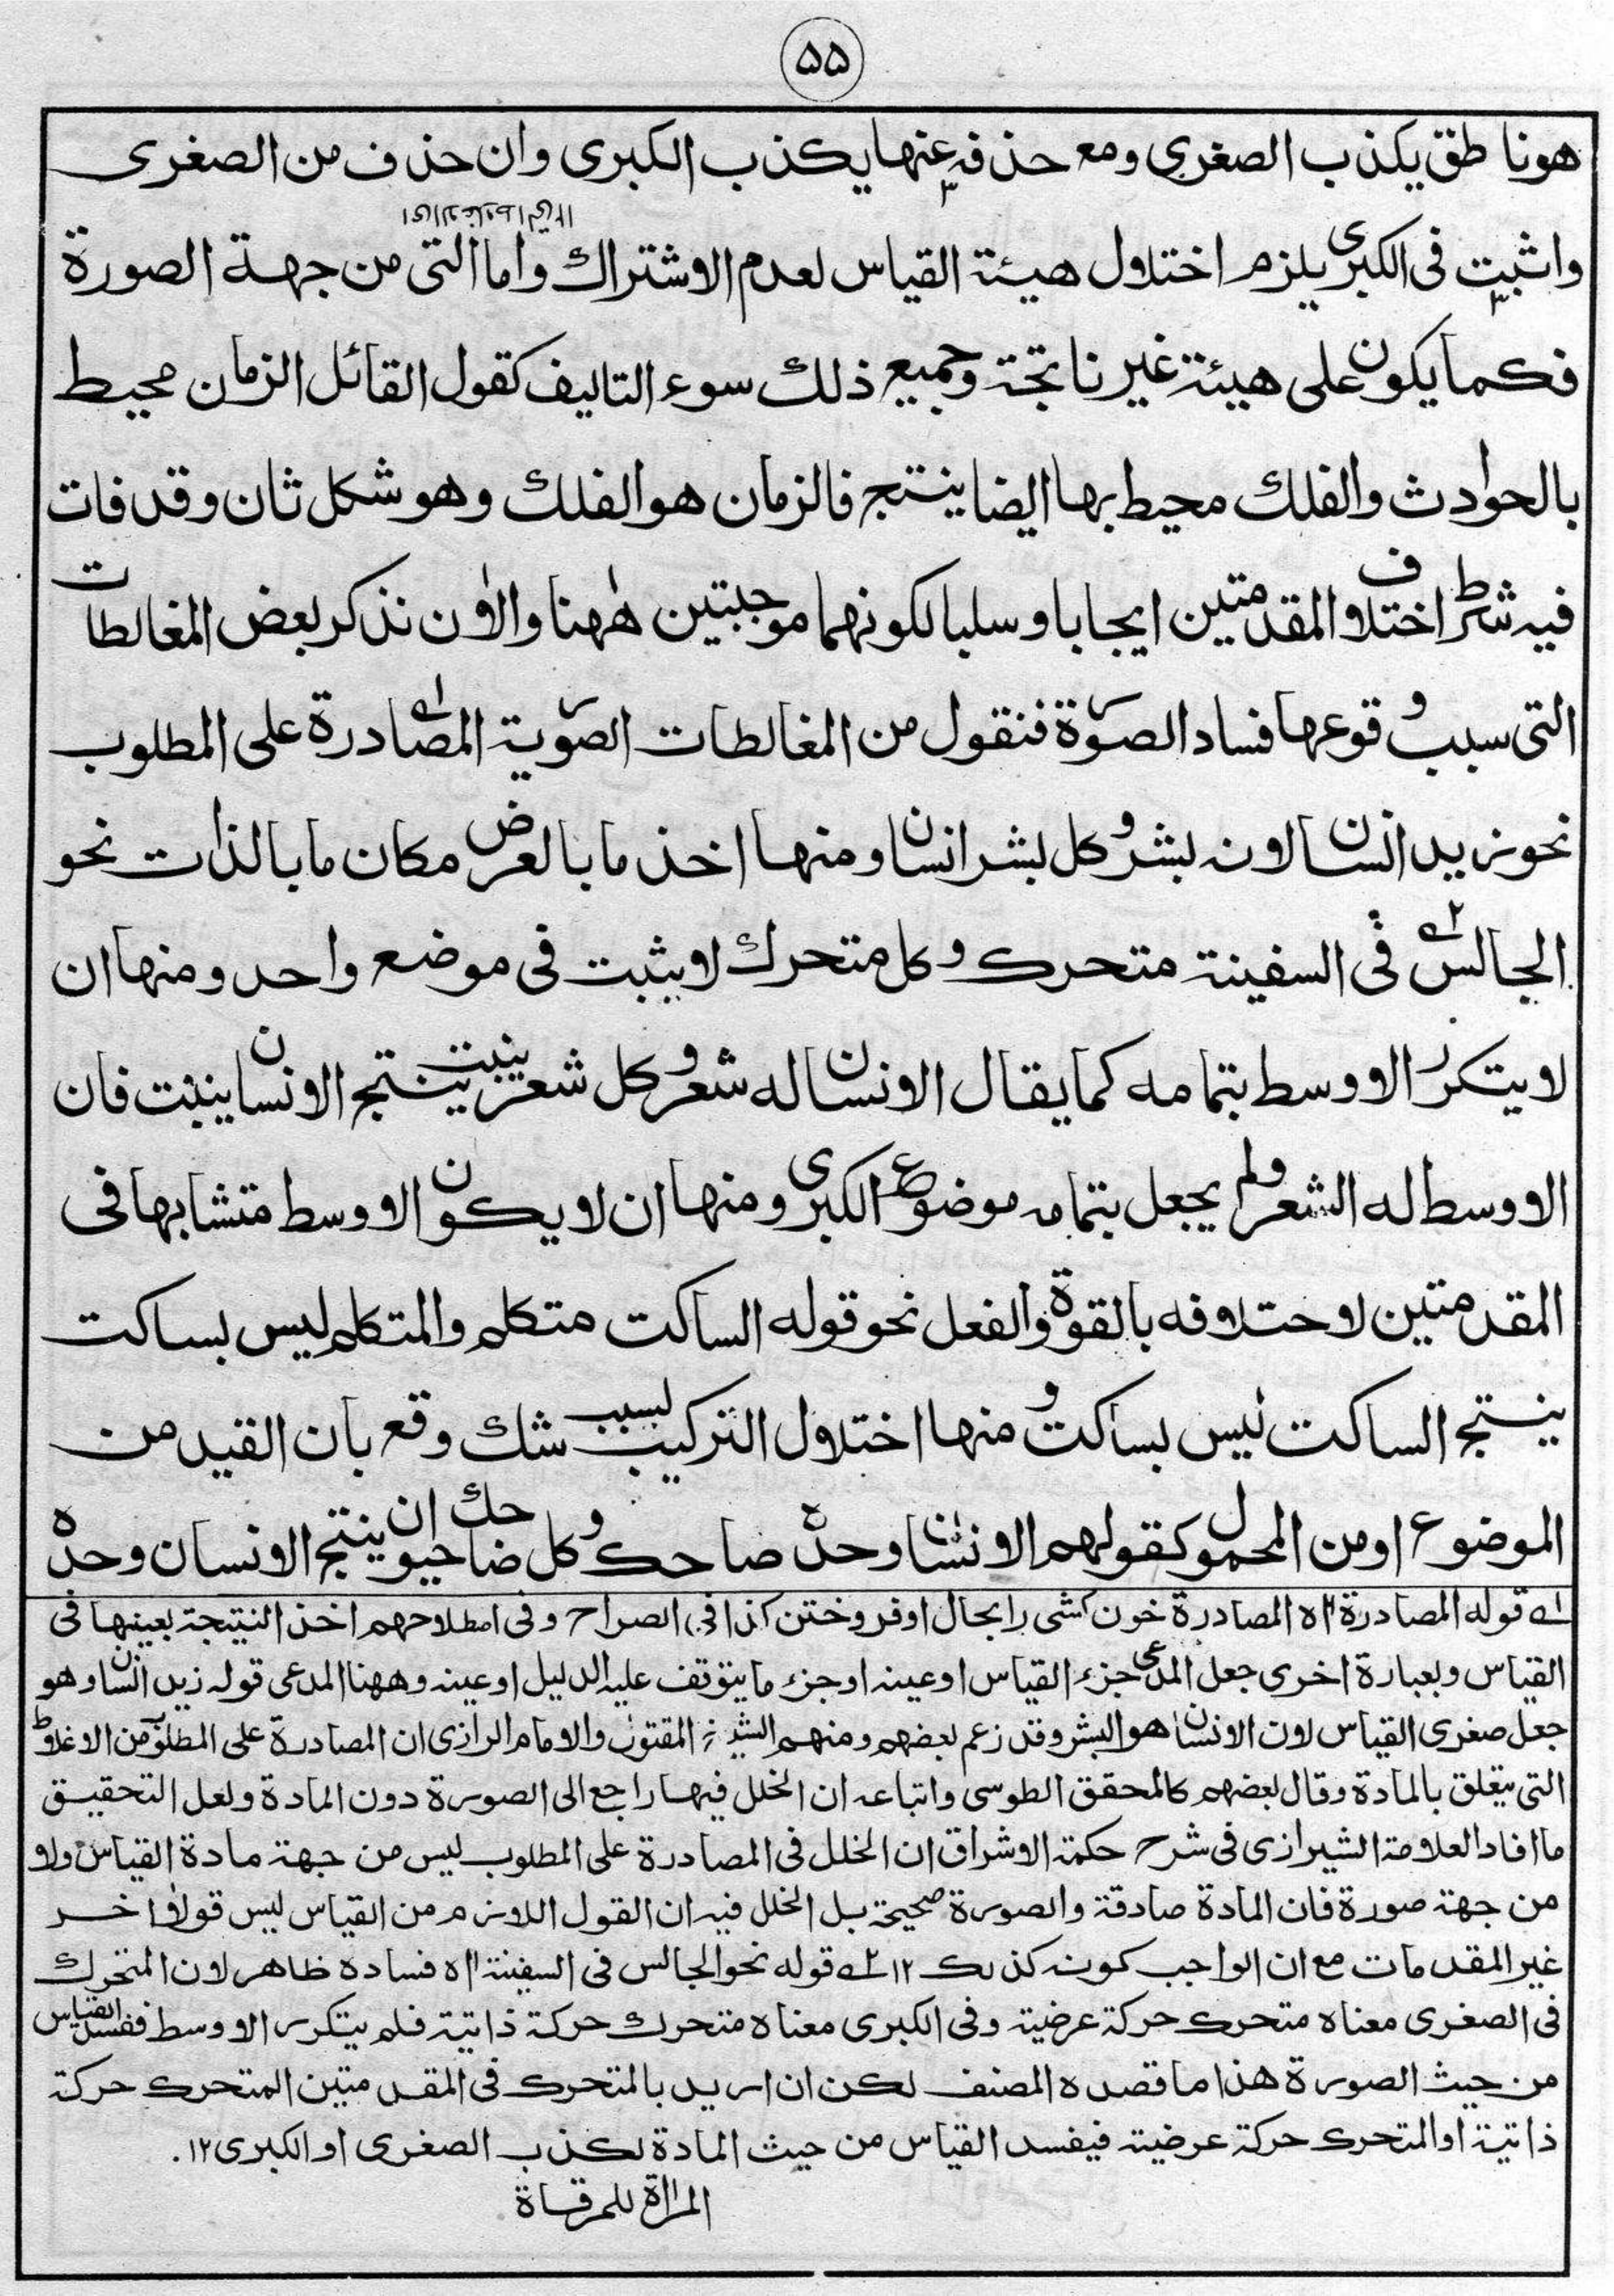 ۵۵
هو ناطق يكذب الصغرى ومع حذفه عنها يكذب الكبرى وان حذف من الصغرى
واثبت فى الكبرى يلزم اختلال هيئة القياس لعدم الاشتراك واما التى من جهة الصورة
فكما يكون على هيئة غير ناتجة وجميع ذلك سوء التاليف كقول القائل الزمان محيط
بالحوادث والفلك محيط بها ايضا ينتج فالزمان هو الفلك وهو شكل ثان وقد فات
فيه شرط اختلاف المقدمتين ايجابا وسلبا لكونهما موجبتين ههنا والان نذكر بعض المغالطات
التى سبب وقوعها فساد الصورة فنقول من المغالطات الصورية المصادرة على المطلوب
نحو زيد انسان لانه بشر وكل بشر انسان ومنها اخذ ما بالعرض مكان ما بالذات نحو
الجالس فى السفينة متحرك وكل متحرك لا يثبت فى موضع واحد ومنها ان
لا يتكرر الاوسط بتمامه كما يقال الانسان له شعر وكل شعر ينبت ينتج الانسان ينبت فان
الاوسط له الشعر ولم يجعل بتمامه موضوع الكبرى ومنها ان لا يكون الاوسط متشابها فى
المقدمتين لاختلافه بالقوة والفعل نحو قوله الساكت متكلم والمتكلم ليس بساكت
ينتج الساكت ليس بساكت ومنها اختلال التركيب بسبب شك وقع بان القيد من
الموضوع او من المحمول كقولهم الانسان وحده ضاحك وكل ضاحك حيوان ينتج الانسان وحده
۱ قوله المصادرة اه المصادرة خون كشى را بجال اوفروختن كذا فى الصراح وفى اصطلاحهم اخذ النتيجة بعينها فى
القياس وبعبارة اخرى جعل المدعى جزء القياس او عينه او جزء ما يتوقف عليه الدليل او عينه وههنا المدعى قوله زيد انسان وهو
جعل صغرى القياس لان الانسان هو البشر وقد زعم بعضهم ومنهم المقتول والامام الرازى ان المصادرة على المطلوب من الاغلاط
التى يتعلق بالمادة وقال بعضهم كالمحقق الطوسى واتباعه ان الخلل فيها راجع الى الصورة دون المادة ولعل التحقيق
ما افاد العلامة الشيرازى فى شرح حكمة الاشراق ان الخلل فى المصادرة على المطلوب ليس من جهة مادة القياس ولا
من جهة صورة فان المادة صادقة والصورة صحيحة بل الخلل فيه ان القول اللازم من القياس ليس قولا اخر
غير المقدمات مع ان الواجب كونه كذلك ۱۲ ۲ قوله نحو الجالس فى السفينة اه فساده ظاهر لان المتحرك
فى الصغرى معناه متحرك حركة عرضية وفى الكبرى معناه متحرك حركة ذاتية فلم يتكرر الاوسط ففسد القياس
من حيث الصورة هذا ما قصده المصنف لكن ان اريد بالمتحرك فى المقدمتين المتحرك حركة
ذاتية او المتحرك حركة عرضية فيفسد القياس من حيث المادة لكذب الصغرى او الكبرى ۱۲.
المراة للمرقاة